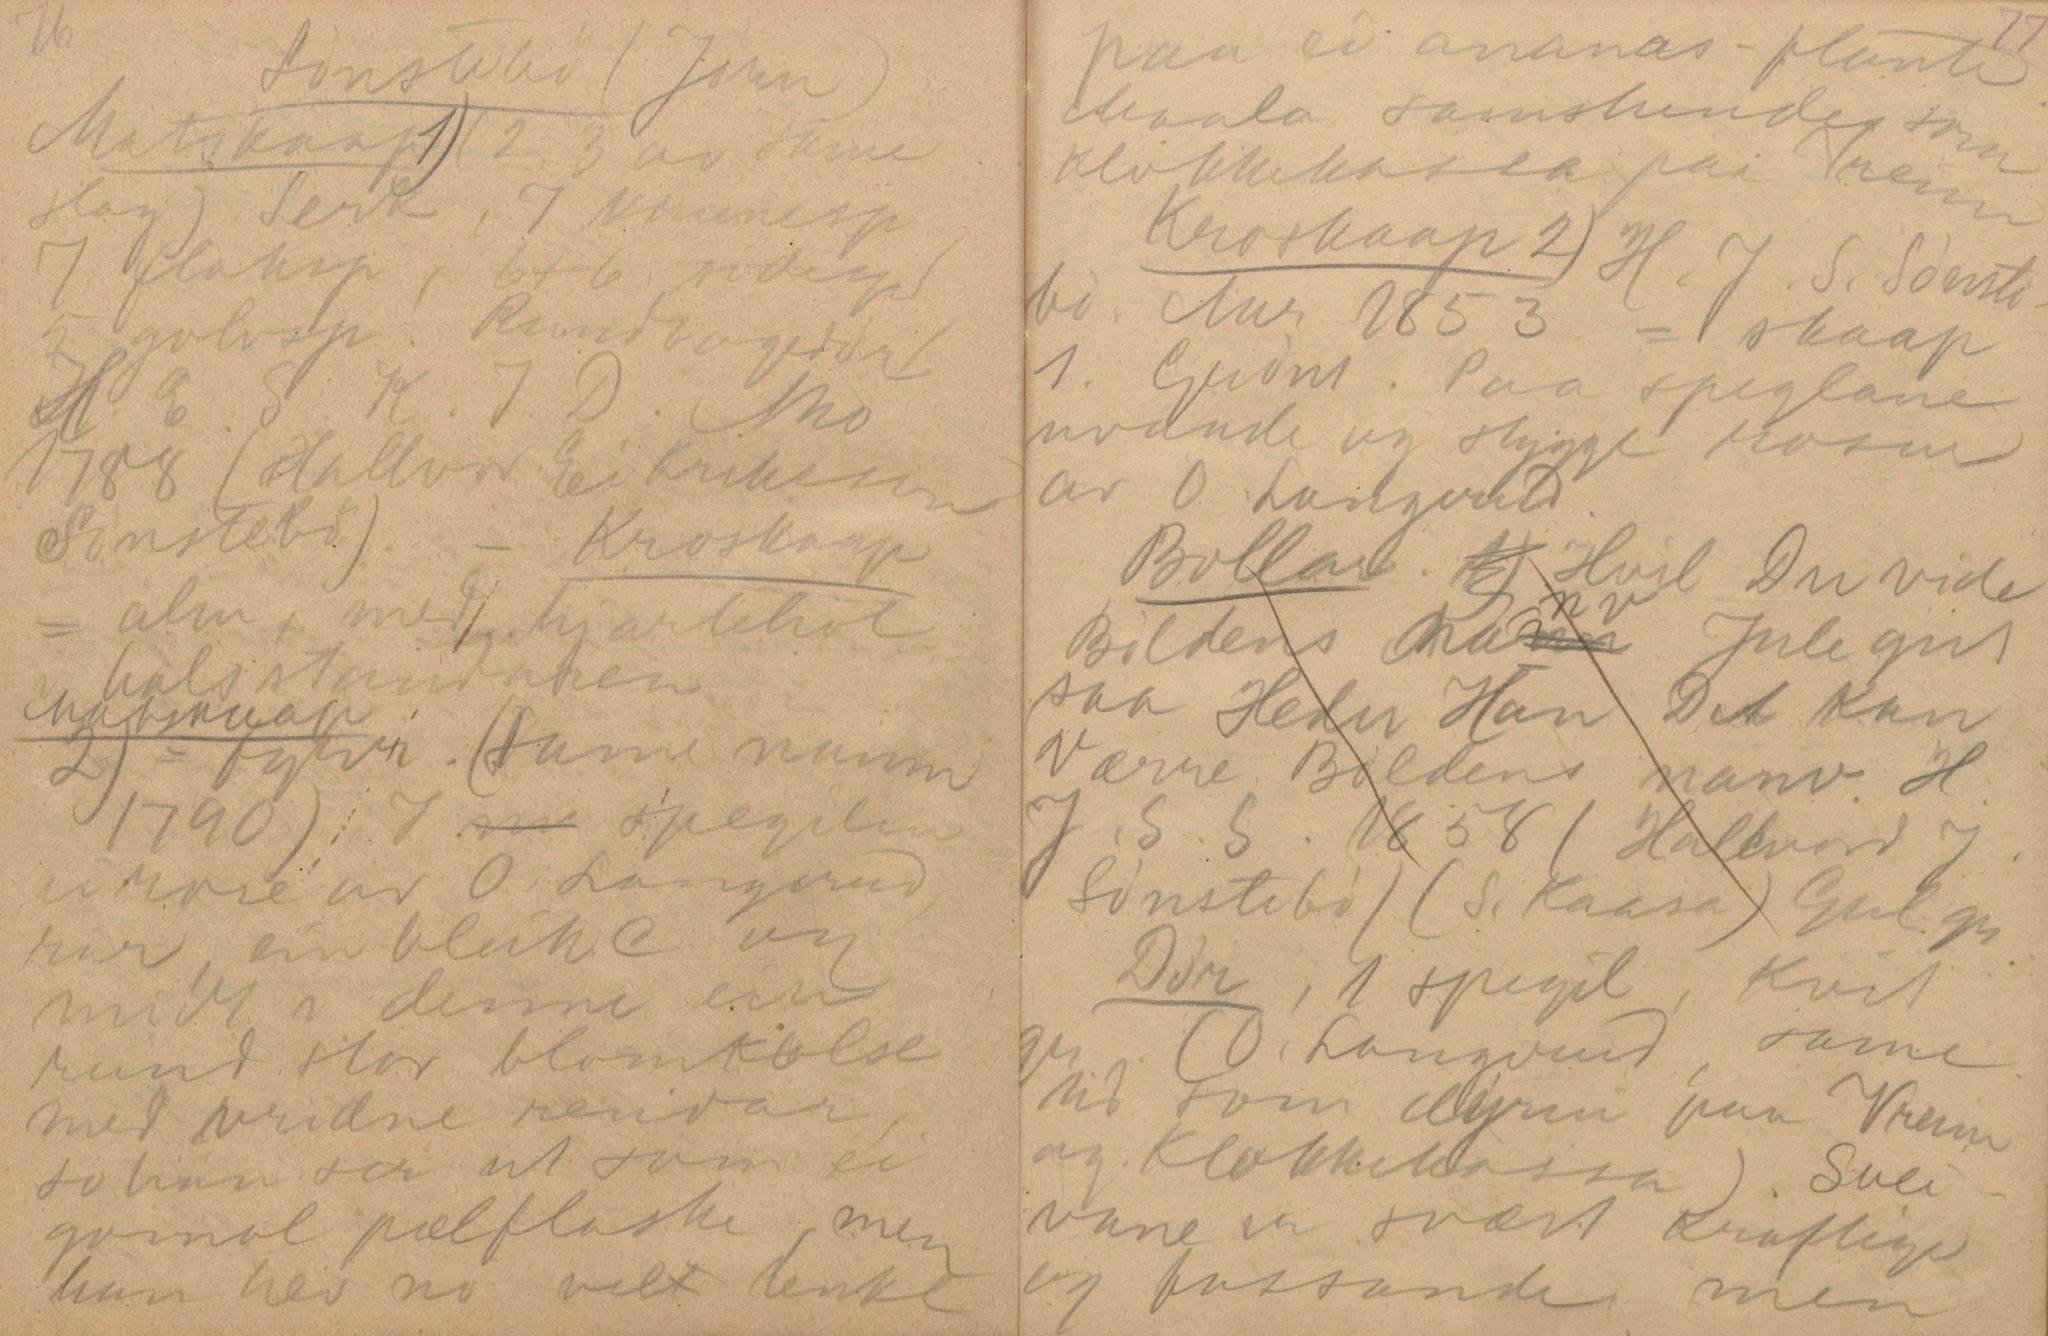 76
Sönstebö (Jörn)
Matskaap 1) (2, 3 av same
slag) Serk, 7 krunesp
7 flaksp, 6+6 sodesp
5 golvsp. Rundbogedör
H. E. S. K. I. D. Mo
1788 (Hallvor Eirikson
Sönstebö). - Kroskaap
= alm, med hjartehol
i halsstandaren
Matskaap
2) = fyrer. (Same namn
1790) I spegilen
ei rose av O. Langerud,
rar, ein bleik C og
midt i denne ein
rund stor blomkolse
med vridne rendar,
so han ser ut som ei
gomol pælflaske, men
han hev no velt tenkt
77
paa ei ananas-plante.
Maala samstundes som
klokkekassa paa Vreim
Kroskaap 2) H. J. S. Sönste-
bö. Aar 1853 = skaap
1. Grönt. Paa speglane
uvande og stygge rosur
av O. Langerud.
Bollar. Hvil Du vide
Boldens nanv Jule gut
saa Heder Han Det Kan
Værre Boldens nanv. H.
J. S. S. 1858 (Hallvord J.
Sönstebö) (S. Kaasa) Gul gr
Dör, 1 spegil, Kvit
gr. (O. Langerud, same
tid som dyrin paa Vreim
og Klokkekassa). Svei-
vane er svært kraftige
og fossande, men